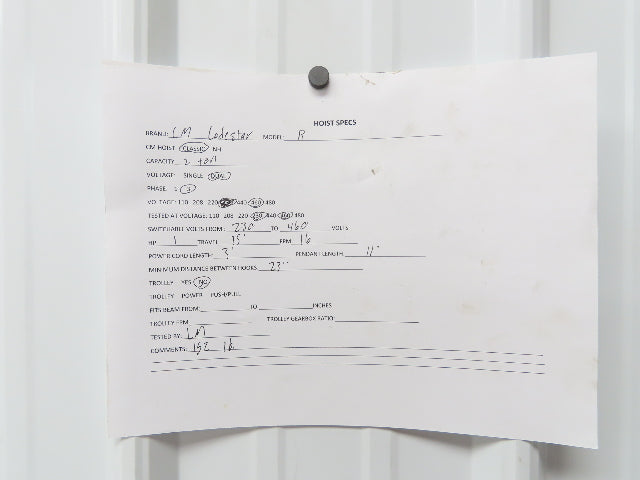 HOIST SPECS
BRAND: CM Lodestar MODEL: R
CM HOIST: CLASSIC NH
CAPACITY: 2 ton
VOLTAGE: SINGLE DUAL
PHASE: 1 3
VOLTAGE: 110 208 220 440 460 480
TESTED AT VOLTAGE: 110 208 220 230 440 460 480
SWITCHABLE VOLTS FROM: 230 TO 460 VOLTS
HP 1 TRAVEL 15' FPM 16
POWER CORD LENGTH: 3' PENDANT LENGTH: 11'
MINIMUM DISTANCE BETWEEN HOOKS: 23"
TROLLEY YES NO
TROLLEY POWER PUSH/PULL
FITS BEAM FROM: TO INCHES
TROLLEY FPM TROLLEY GEARBOX RATIO:
TESTED BY: LM
COMMENTS: 192 lb